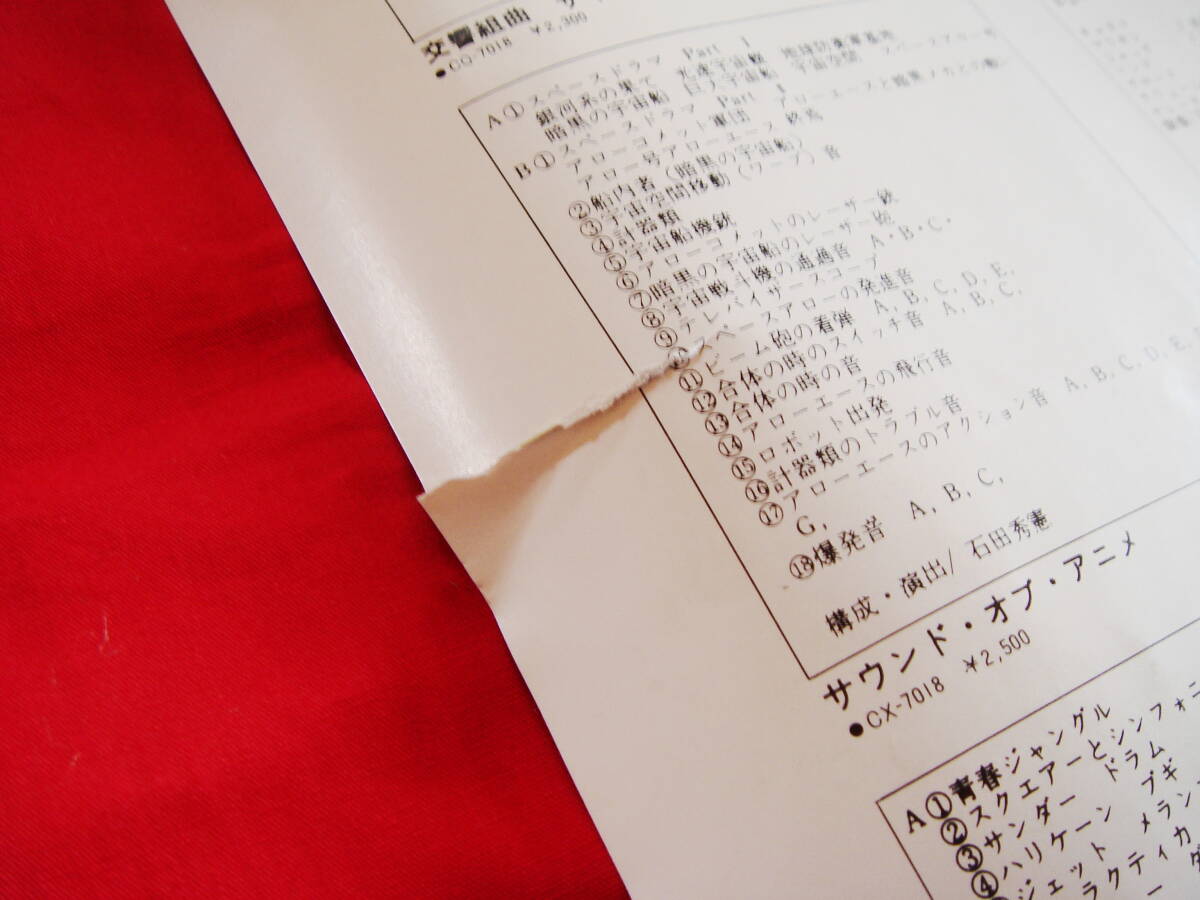 交響組曲 サ
●CQ-7018 ¥2,300
A①スペースドラマ Part 1
銀河系の果て 光速宇宙艇 地球防衛軍基地
暗黒の宇宙船 巨大宇宙船 宇宙空間 スペースアロー号
B①スペースドラマ Part
アローコメット軍団 アローエースと暗黒メカとの戦い
アロー号アローエース 終焉
②船内者(暗黒の宇宙船)
③宇宙空間移動(ワープ)音
④計器類
⑤宇宙船機銃
⑥アローコメットのレーザー銃
⑦暗黒の宇宙船のレーザー砲
⑧宇宙戦斗機の通過音 A・B・C・
⑨テレバイザースコープ
⑩スペースアローの発進音
⑪ビーム砲の着弾 A, B, C, D, E,
⑫合体の時のスイッチ音 A, B, C,
⑬合体の時の音
⑭アローエースの飛行音
⑮ロボット出発
⑯計器類のトラブル音
⑰アローエースのアクション音 A, B, C, D, E,
G,
⑱爆発音 A, B, C,
構成・演出/石田秀憲
サウンド・オブ・アニメ
●CX-7018 ¥2,500
A①青春ジャングル
②スクエアーとシンフォニ
③サンダー ドラム
④ハリケーン ブギ
ジェット メラン
ラクティカ